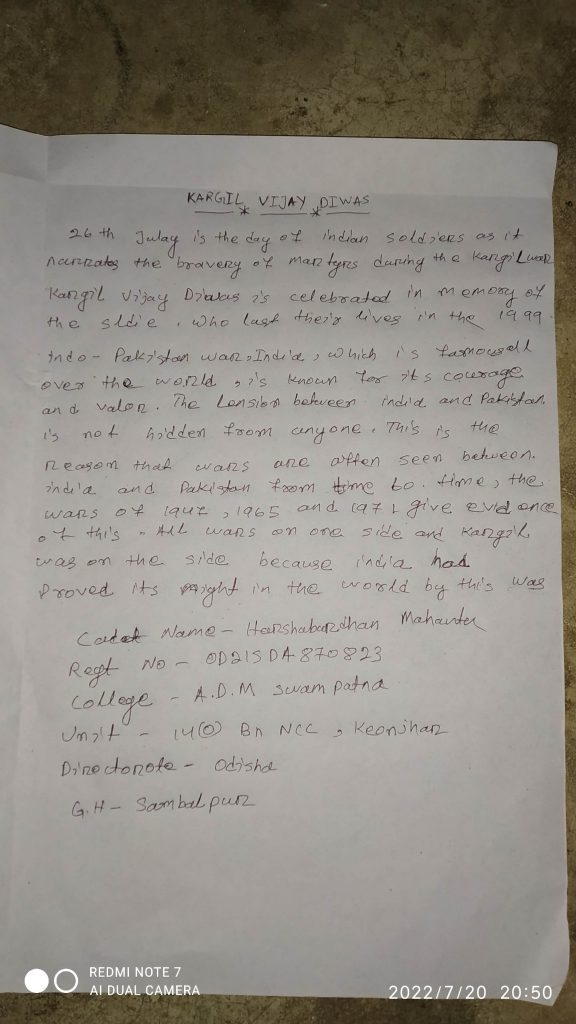 KARGIL VIJAY DIWAS
26 th Julay is the day of indian soldiers as it
narrates the bravery of martyrs during the Kargil war
Kargil Vijay Diwas is celebrated in memory of
the sldie . Who last their lives in the 1999
Indo - Pakistan war, India, which is famousall
over the world , is known for its courage
and valor. The tension between india and Pakistan.
is not hidden from anyone. This is the
reason that wars are often seen between.
india and Pakistan from time to. time, the
wars of 1947, 1965 and 1971 give evidence
of this. All wars on one side and Kargil
was on the side because india had
Proved its might in the world by this was
Cadet Name - Harshabardhan Mahanta
Regt No - OD21SDA870823
College - A.D.M swampatna
Unit - 14(O) Bn NCC , Keonjhar
Directorote - Odisha
G.H - Sambalpur
REDMI NOTE 7
AI DUAL CAMERA
2022/7/20 20:50